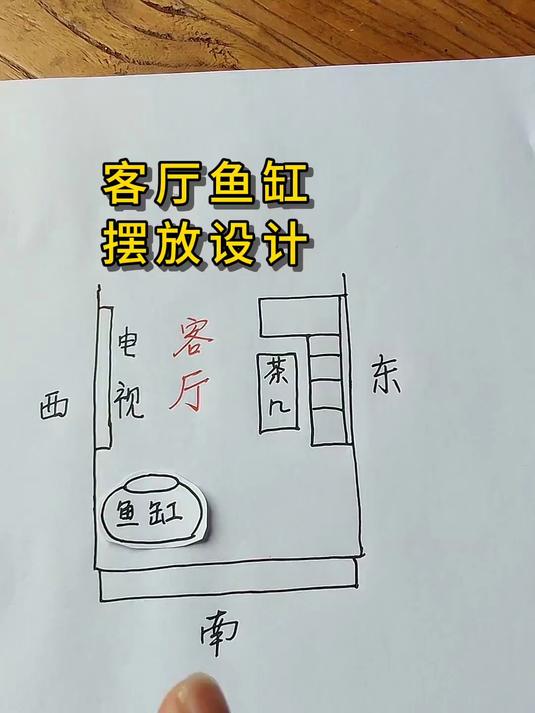 客厅鱼缸
摆放设计
电视
客厅
茶几
西
东
鱼缸
南